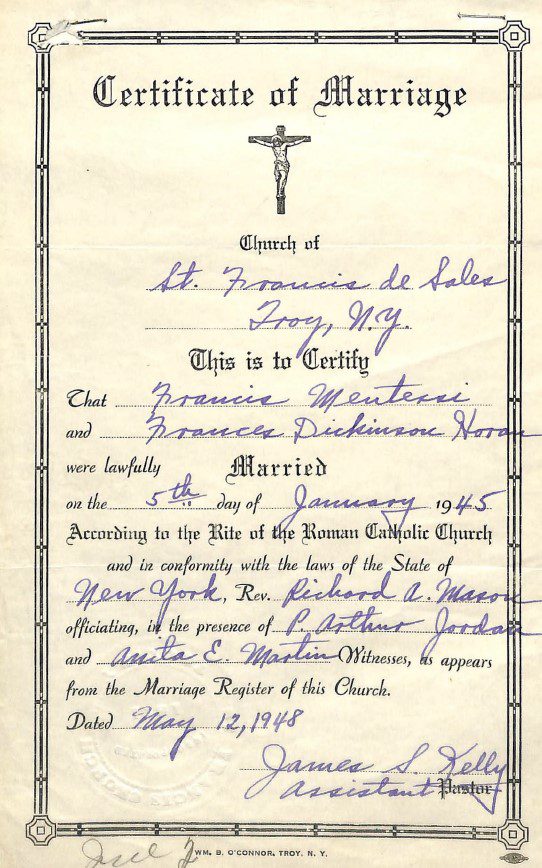 Certificate of Marriage
Church of
St. Francis de Sales
Troy, N.Y.
This is to Certify
That Francis Mentessi
and Frances Dickinson Horan
were lawfully Married
on the 5th day of January 1945
According to the Rite of the Roman Catholic Church
and in conformity with the laws of the State of
New York, Rev. Richard A. Mason
officiating, in the presence of P. Arthur Jordan
and Anita E. Martin Witnesses, as appears
from the Marriage Register of this Church.
Dated May 12, 1948
James S. Kelly
Assistant Pastor
WM. B. O'CONNOR, TROY, N. Y.